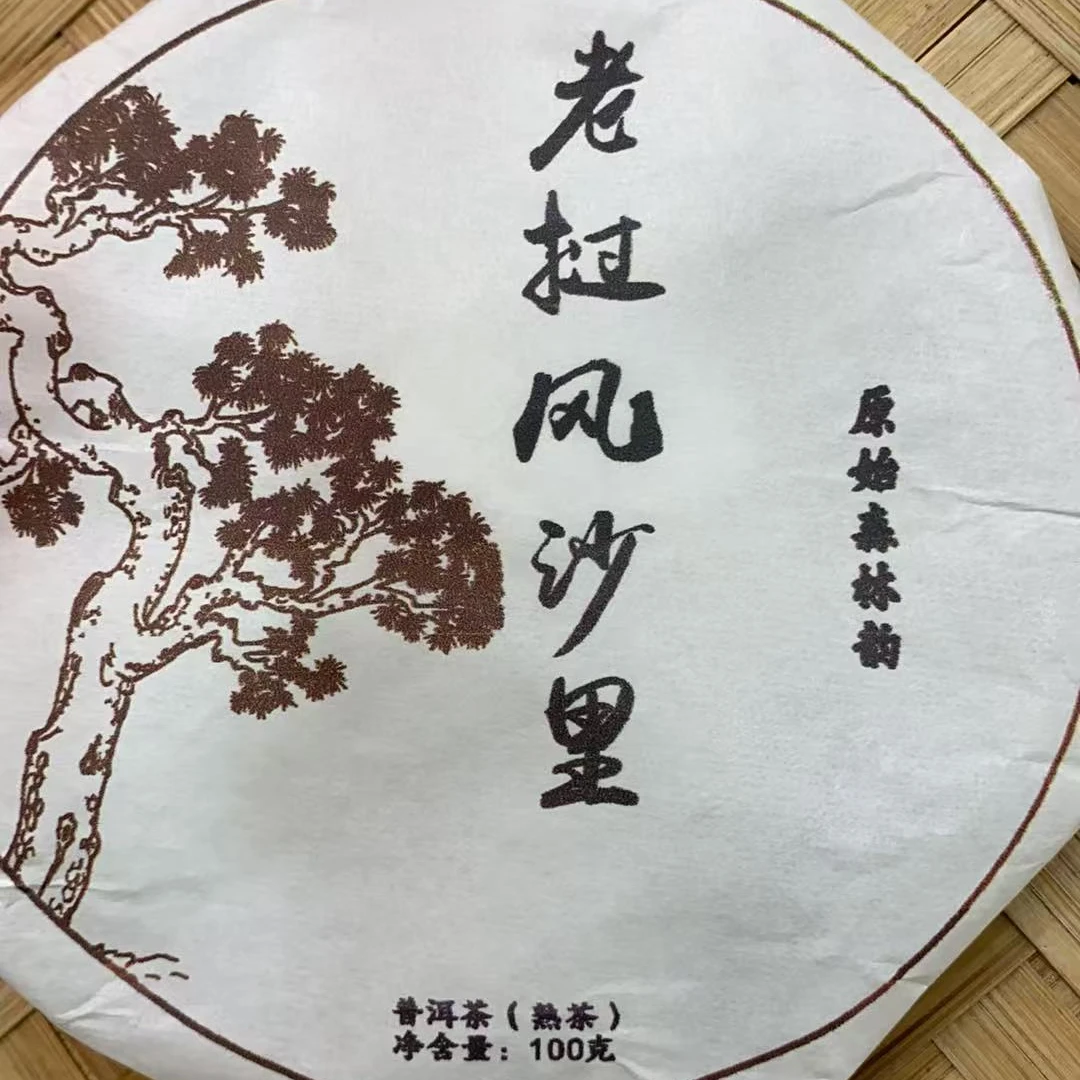 老挝风沙里
原始森林韵
普洱茶（熟茶）
净含量：100克